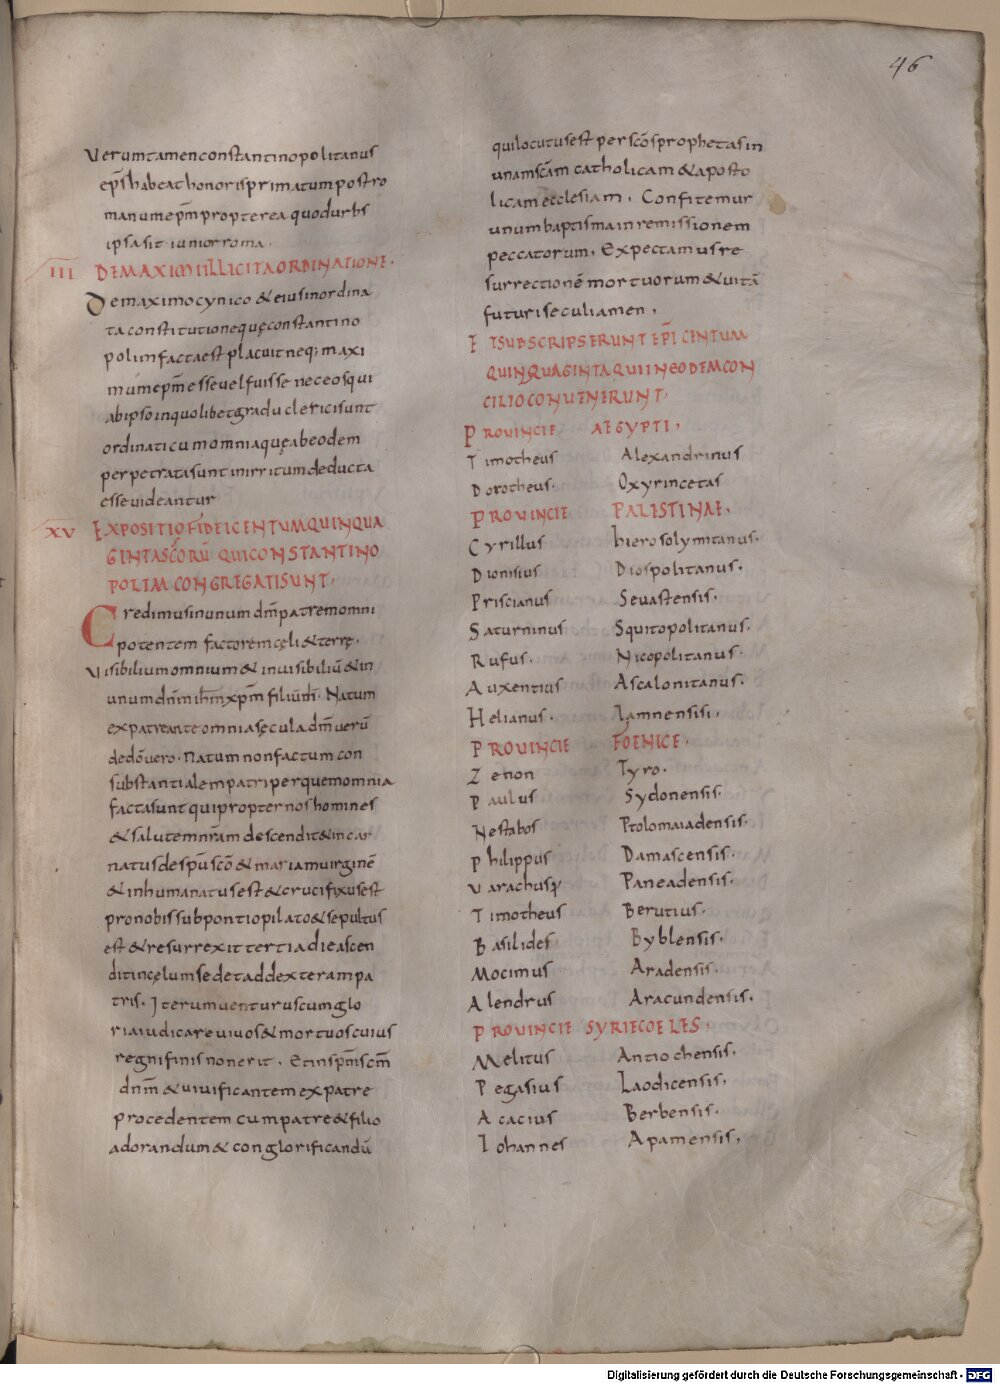 46
Verumtamen constantinopolitanus
ep̅s habeat honoris primatum postro
manum ep̅m propterea quod urbs
ipsa sit iunior roma.
III DE MAXIMI ILLICITA ORDINATIONE.
De maximo cynico & eius inordina
ta constitutione quę constantino
polim facta est placuit neq; maxi
mum ep̅m esse uel fuisse nec eos qui
ab ipso in quolibet gradu clerici sunt
ordinati cum omnia quę ab eodem
perpetrata sunt in irritum deducta
esse uideantur
XV EXPOSITIO FIDEI CENTUM QUINQUA
GINTA SC̅ORU̅ QUI CONSTANTINO
POLIM CONGREGATI SUNT.
Credimus in unum dm̅ patrem omni
potentem factorem cęli & terrę.
Visibilium omnium & inuisibiliu̅ & in
unum dn̅m ih̅m xp̅m filiu̅ di̅. Natum
ex patre ante omnia sęcula dm̅ ueru̅
de do̅ uero. Natum non factum con
substantialem patri per quem omnia
facta sunt qui propter nos homines
& salutem nr̅am descendit & incar
natus de sp̅u sc̅o & maria uirgine̅
& inhumanatus est & crucifixus est
pro nobis sub pontio pilato & sepultus
est & resurrexit tertia die ascen
dit in cęlum sedet ad dexteram pa
tris. Iterum uenturus cum glo
ria iudicare uiuos & mortuos cuius
regni finis non erit. Et in sp̅m sc̅m
dn̅m & uiuificantem ex patre
procedentem cum patre & filio
adorandum & conglorificandu̅
qui locutus est per sc̅os prophetas in
unam sc̅am catholicam & aposto
licam ecclesiam. Confitemur
unum baptisma in remissionem
peccatorum. Expectamus re
surrectione̅ mortuorum & uita̅
futuri seculi amen.
ET SUBSCRIPSERUNT EP̅I CENTUM
QUINQUAGINTA QUI IN EODEM CON
CILIO CONUENERUNT.
PROUINCIE AEGYPTI.
Timotheus Alexandrinus
Dorotheus. Oxyrincetas
PROUINCIE PALESTINAE.
Cyrillus hierosolymitanus.
Dionisius Diospolitanus.
Priscianus Seuastensis.
Saturninus Squitopolitanus.
Rufus. Nicopolitanus.
Auxentius Ascalonitanus.
Helianus. Iamnensisi.
PROUINCIE FOENICE.
Zenon Tyro.
Paulus Sydonensis.
Nestabos Ptolomaiadensis.
Philippus Damascensis.
Varachus Paneadensis.
Timotheus Berutius.
Basilides Byblensis.
Mocimus Aradensis.
Alendrus Aracundensis.
PROUINCIE SYRIE COELES.
Melitus Antiochensis.
Pegasius Laodicensis.
Acacius Berbensis.
Iohannes Apamensis.
Digitalisierung gefördert durch die Deutsche Forschungsgemeinschaft - DFG